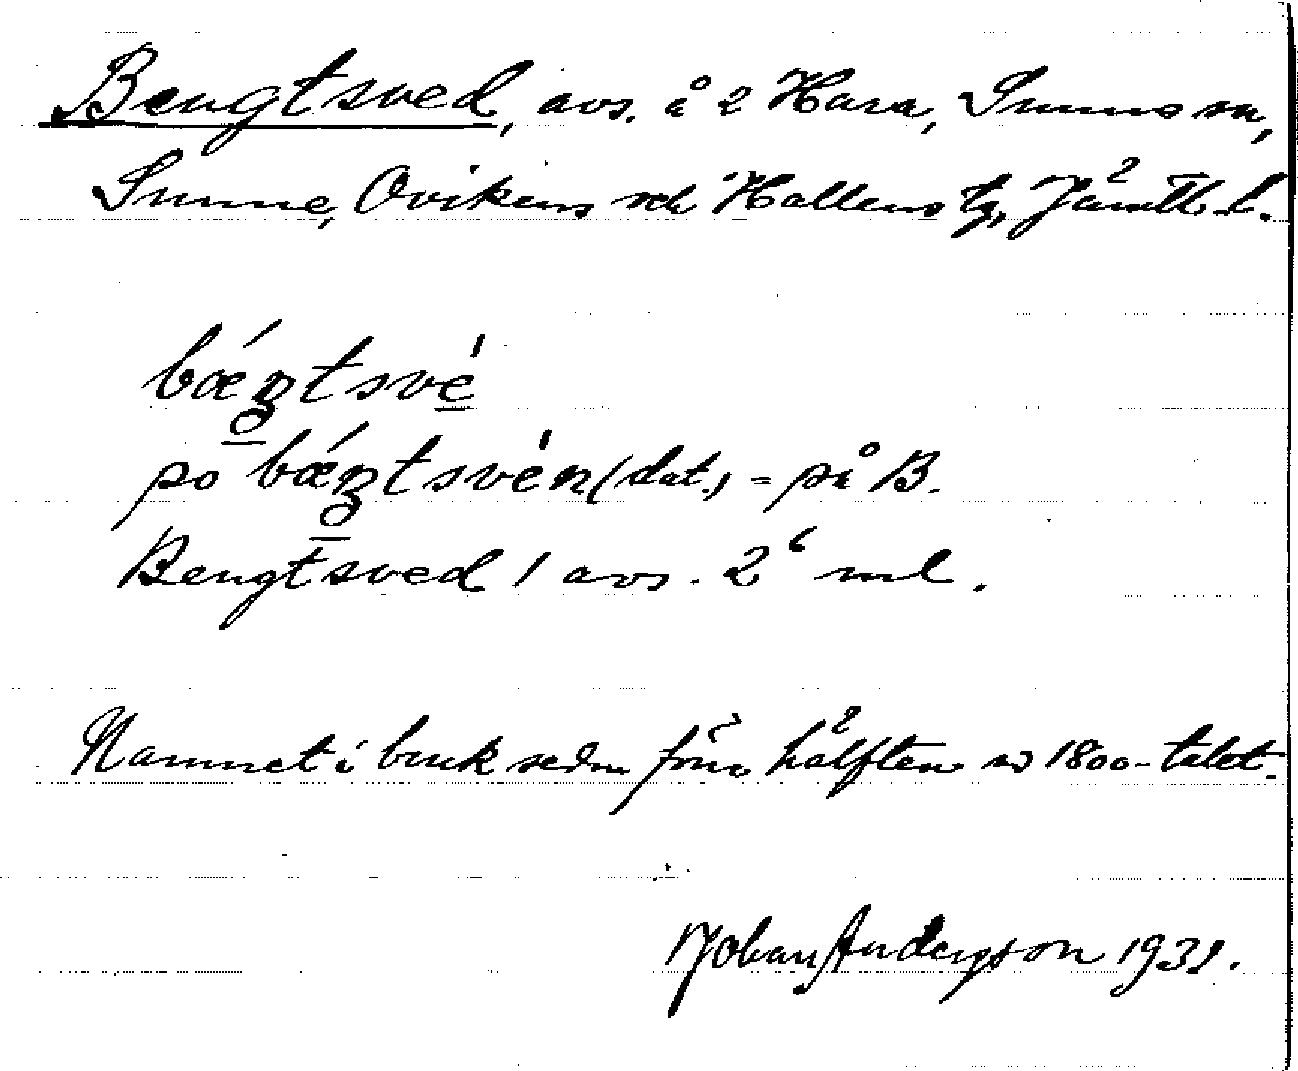 Bengtsved, avs. å 2 Hara, Sunne sn,
Sunne, Ovikens och Hallens tg, Jämtl. l.
bǽŋtsvé
po bǽŋtsvén (dat.) = på B.
Bengtsved 1 avs. 2⁶ ml.
Namnet i bruk sedan förra hälften av 1800-talet.
Johan Andersson 1931.